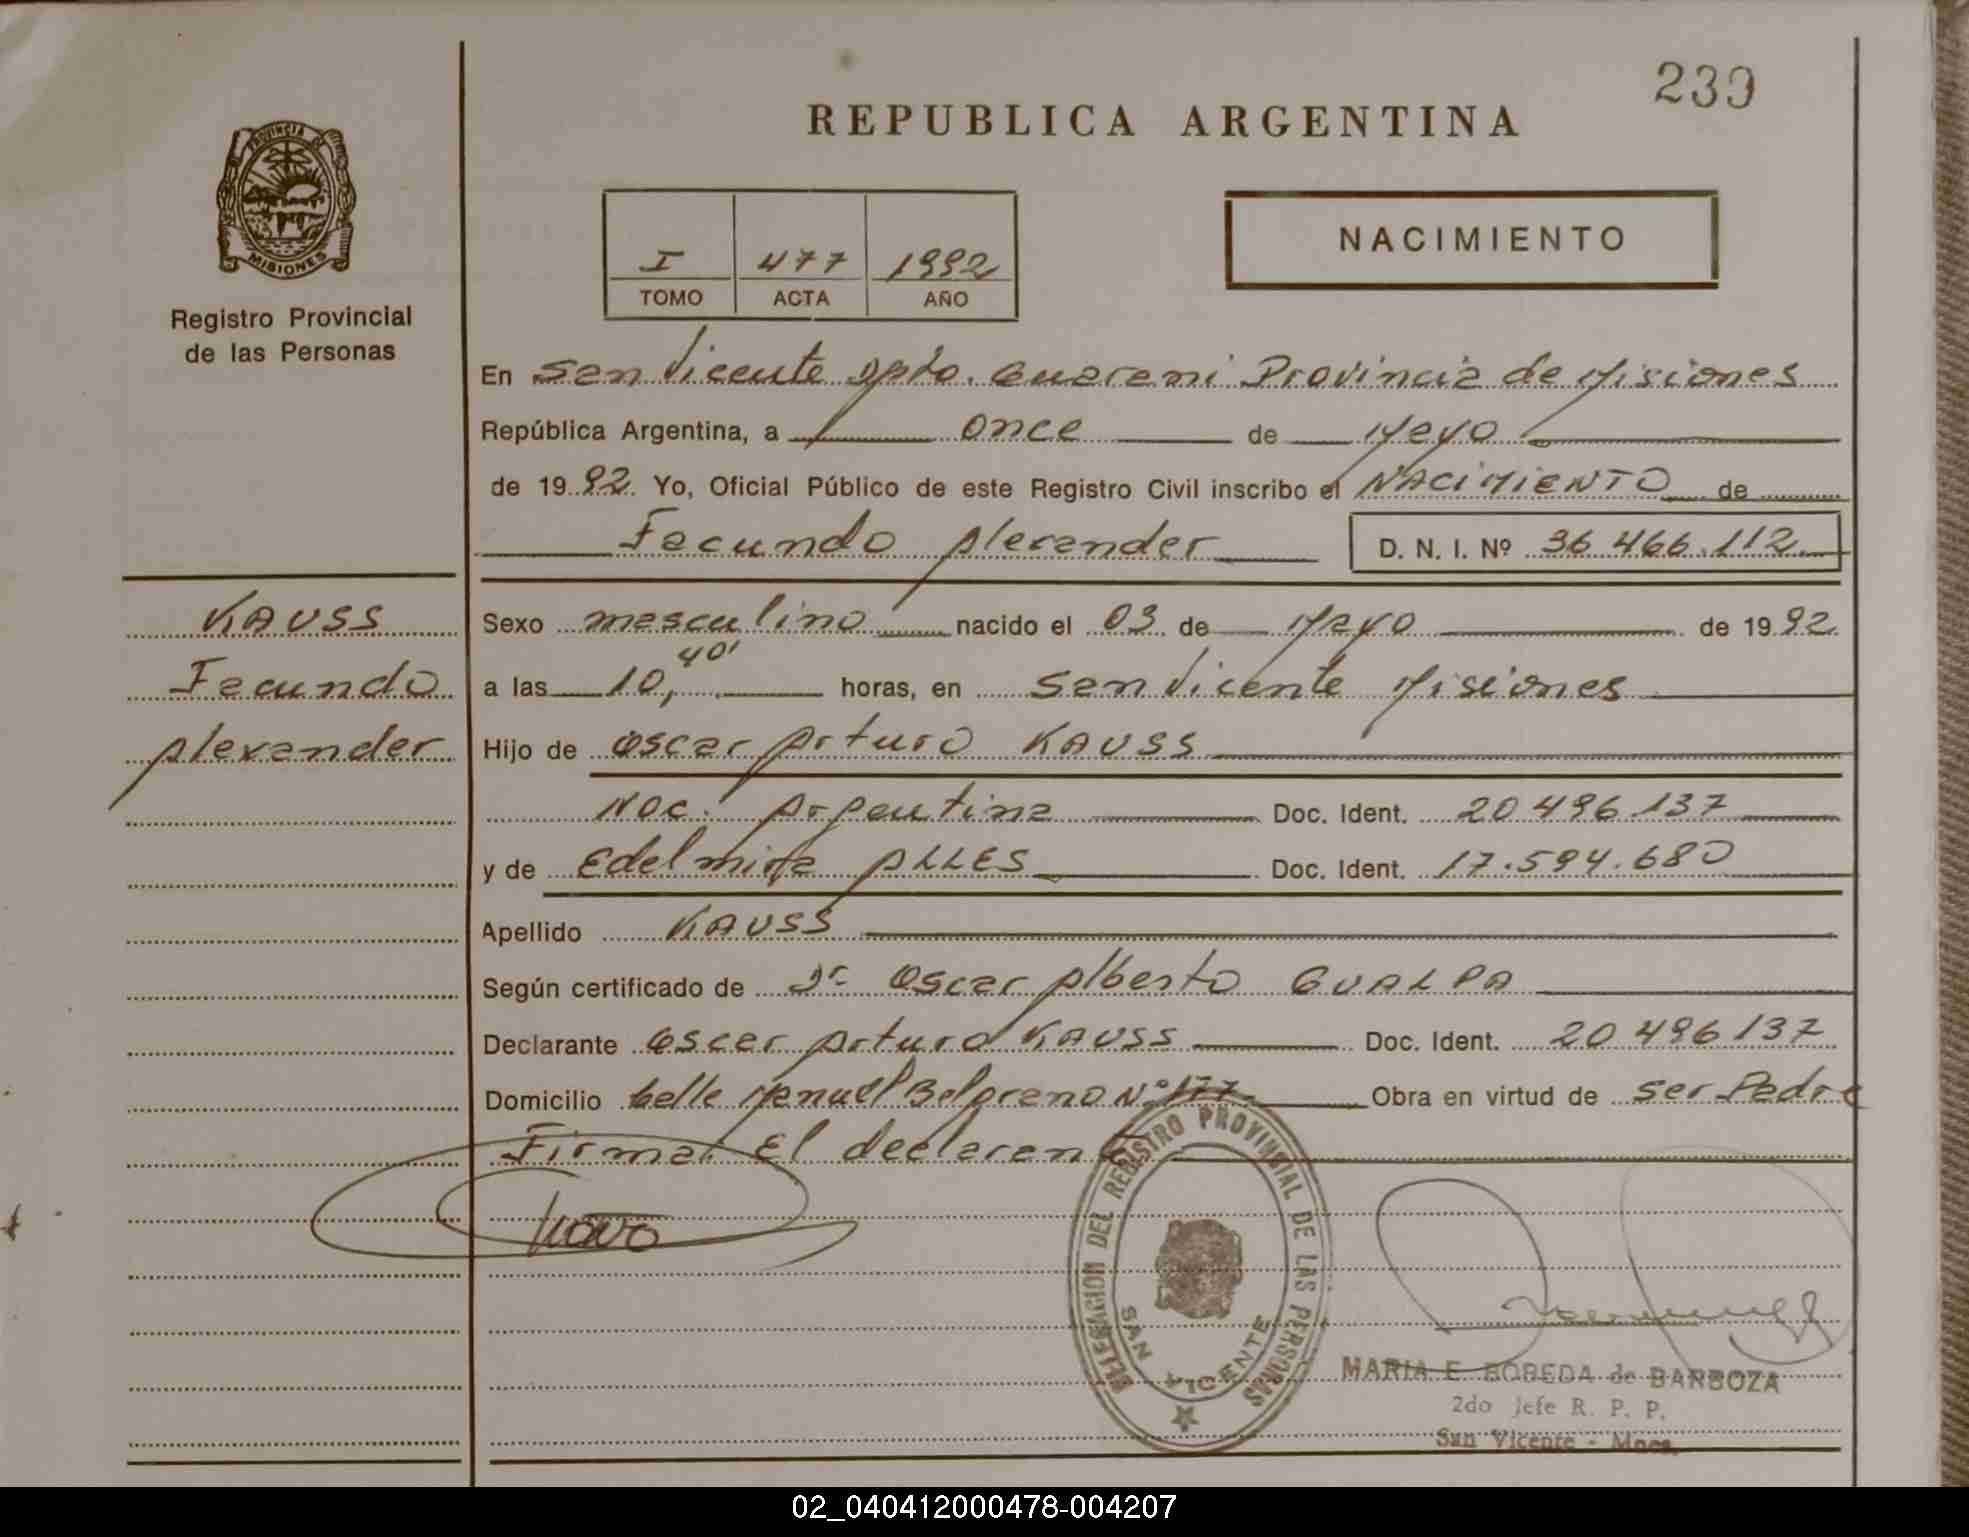 239
REPUBLICA ARGENTINA
PROVINCIA DE
MISIONES
Registro Provincial
de las Personas
I 477 1992
TOMO ACTA AÑO
NACIMIENTO
En San Vicente Dpto. Guarani Provincia de Misiones
República Argentina, a once de Mayo
de 1992. Yo, Oficial Público de este Registro Civil inscribo el NACIMIENTO de
Facundo Alexander D. N. I. Nº 36.466.112
KAUSS
Facundo
Alexander
Sexo masculino nacido el 03 de Mayo de 1992
a las 10,40' horas, en San Vicente Misiones
Hijo de Oscar Arturo KAUSS
Nac. Argentina Doc. Ident. 20 496.137
y de Edelmira ALLES Doc. Ident. 17.594.680
Apellido KAUSS
Según certificado de Dr. Oscar Alberto GUALPA
Declarante Oscar Arturo KAUSS Doc. Ident. 20 496 137
Domicilio Calle Manuel Belgrano Nº 177 Obra en virtud de ser Padre
Firma El declarante
DELEGACION DEL REGISTRO PROVINCIAL DE LAS PERSONAS
SAN VICENTE
MARIA E. BOBEDA de BARBOZA
2do Jefe R. P. P.
San Vicente - Mnes.
02_040412000478-004207